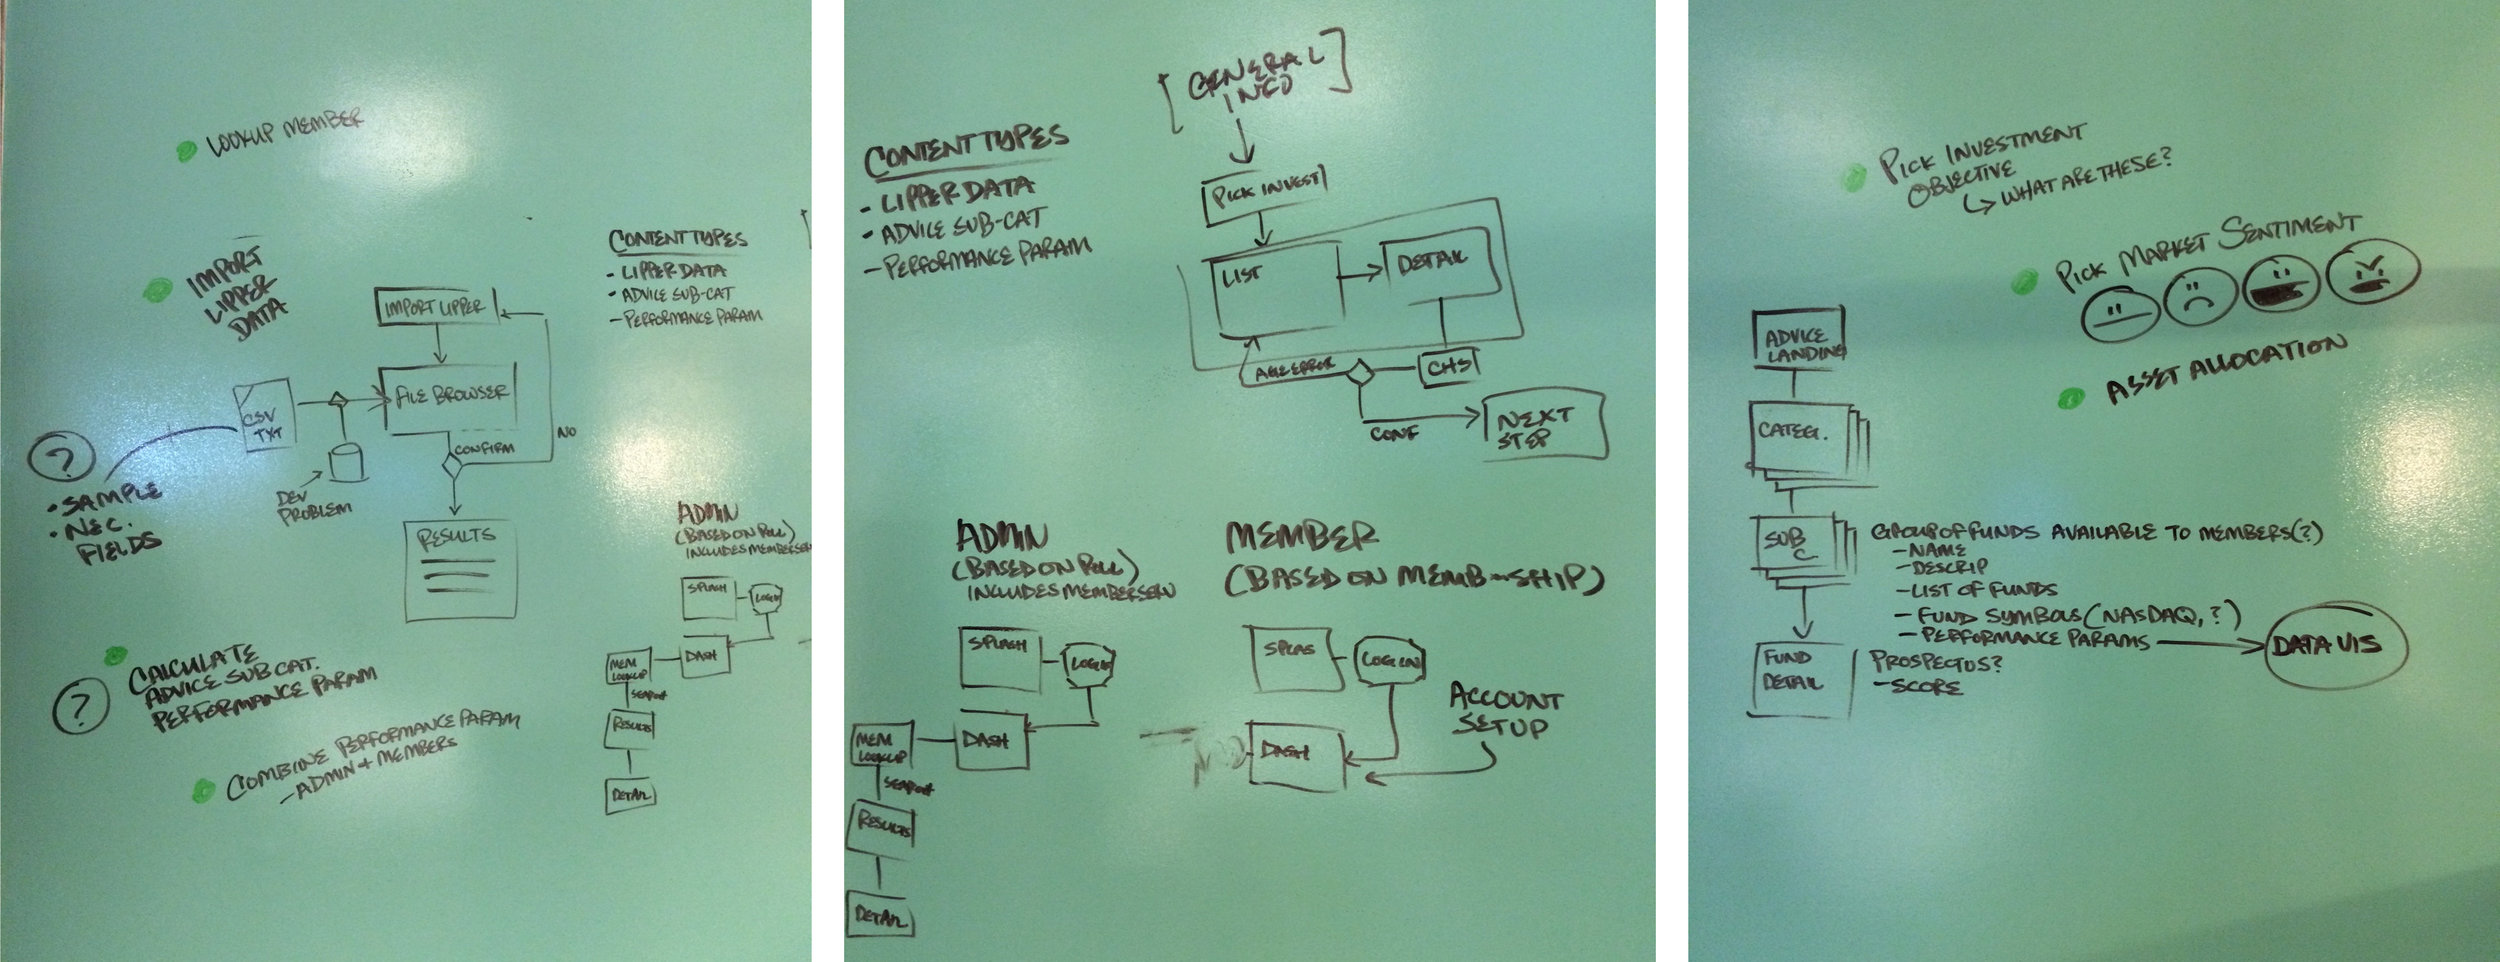 LOOKUP MEMBER
IMPORT
LIPPER
DATA
IMPORT LIPPER
FILE BROWSER
CSV
TXT
CONFIRM
NO
DEV
PROBLEM
RESULTS
?
• SAMPLE
• NEC.
FIELDS
?
CALCULATE
ADVICE SUB CAT.
PERFORMANCE PARAM
COMBINE PERFORMANCE PARAM
- ADMIN + MEMBERS
CONTENT TYPES
- LIPPER DATA
- ADVICE SUB-CAT
- PERFORMANCE PARAM
ADMIN
(BASED ON ROLL)
INCLUDES MEMBERSERV
SPLASH
LOGIN
DASH
MEM
LOOKUP
SEARCH
RESULTS
DETAIL
[GENERAL
INFO]
CONTENT TYPES
- LIPPER DATA
- ADVICE SUB-CAT
- PERFORMANCE PARAM
PICK INVEST
LIST
DETAIL
ERROR
CONF
NEXT
STEP
ADMIN
(BASED ON ROLL)
INCLUDES MEMBERSERV
SPLASH
LOGIN
DASH
MEM
LOOKUP
SEARCH
RESULTS
DETAIL
MEMBER
(BASED ON MEMB~SHIP)
SPLAS
LOGIN
DASH
ACCOUNT
SETUP
PICK INVESTMENT
OBJECTIVE
WHAT ARE THESE?
PICK MARKET SENTIMENT
ASSET ALLOCATION
ADVICE
LANDING
CATEG.
SUB
C
FUND
DETAIL
GROUP OF FUNDS AVAILABLE TO MEMBERS(?)
- NAME
- DESCRIP
- LIST OF FUNDS
- FUND SYMBOLS (NASDAQ, ?)
- PERFORMANCE PARAMS
DATA VIS
PROSPECTUS?
- SCORE